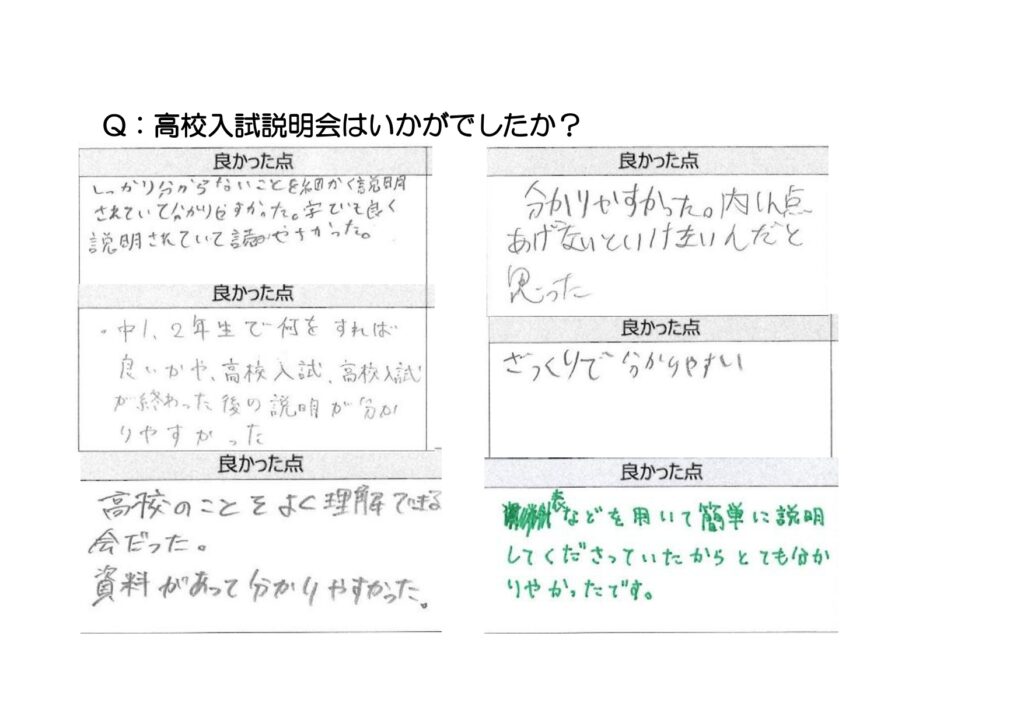 Q：高校入試説明会はいかがでしたか？
良かった点
しっかり分からないことを細かく説明
されていて分かりやすかった。字でいも良く
説明されていて読やすかった。
良かった点
・中1、2年生で何をすれば
良いかや、高校入試、高校入試
が終わった後の説明が分か
りやすかった
良かった点
高校のことをよく理解できる
会だった。
資料があって分かりやすかった。
良かった点
分かりやすかった。内しん点
あげないといけないんだと
思った
良かった点
ざっくりで分かりやすい
良かった点
表などを用いて簡単に説明
してくださっていたからとても分か
りやかったです。